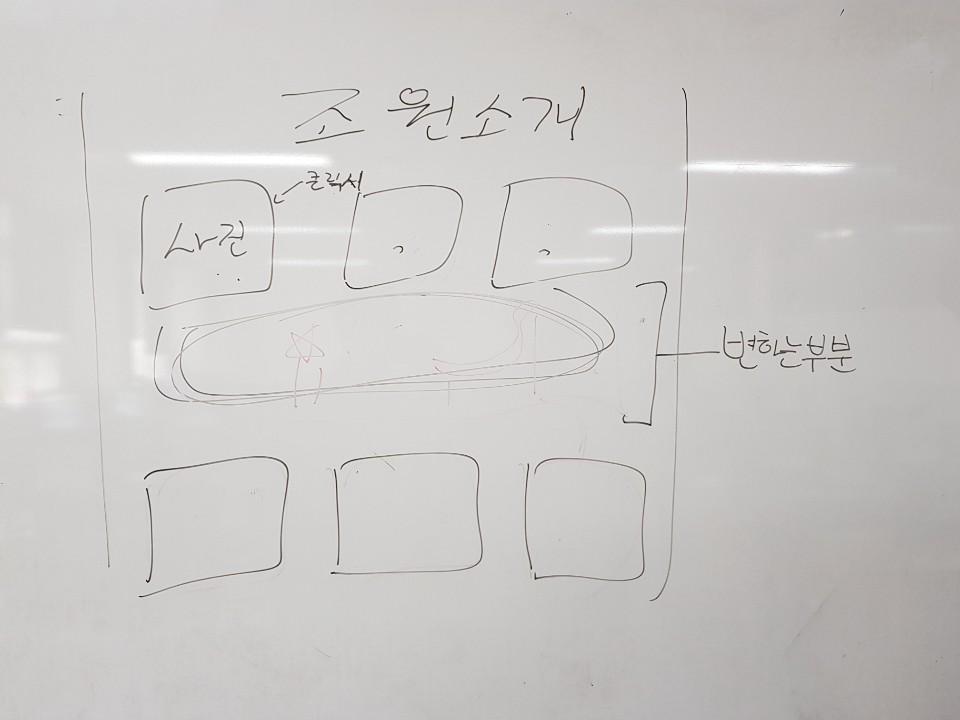 조원소개
클릭시
사진
변하는부분